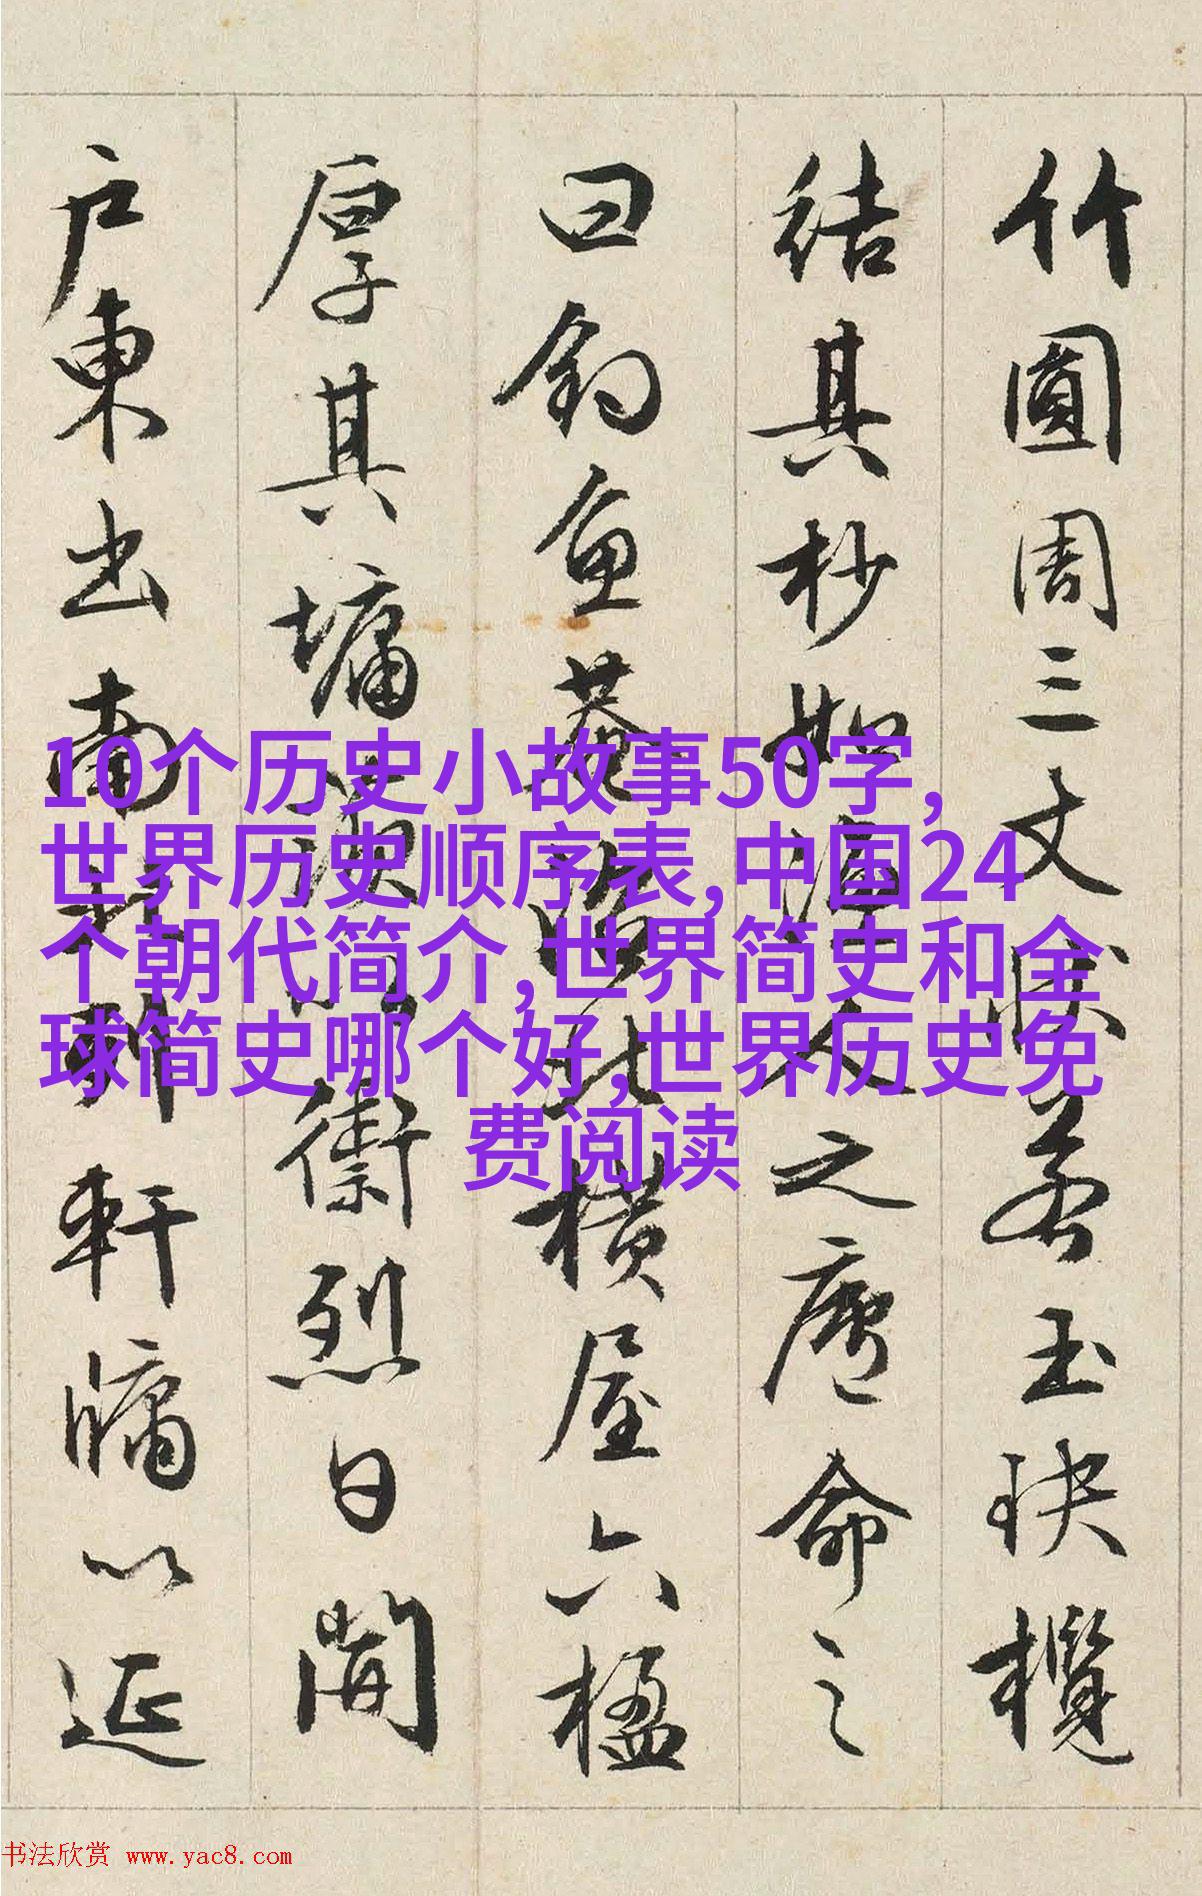 竹圓周三丈
若玉玦榥
結其杪如
人之廬命之
曰釣魚菴
橫屋六楹
厚其墉
衝烈日開
戶東出南
軒牖以延
10个历史小故事50字,
世界历史顺序表,中国24
个朝代简介,世界简史和全
球简史哪个好,世界历史免
费阅读
书法欣赏 www.yac8.com